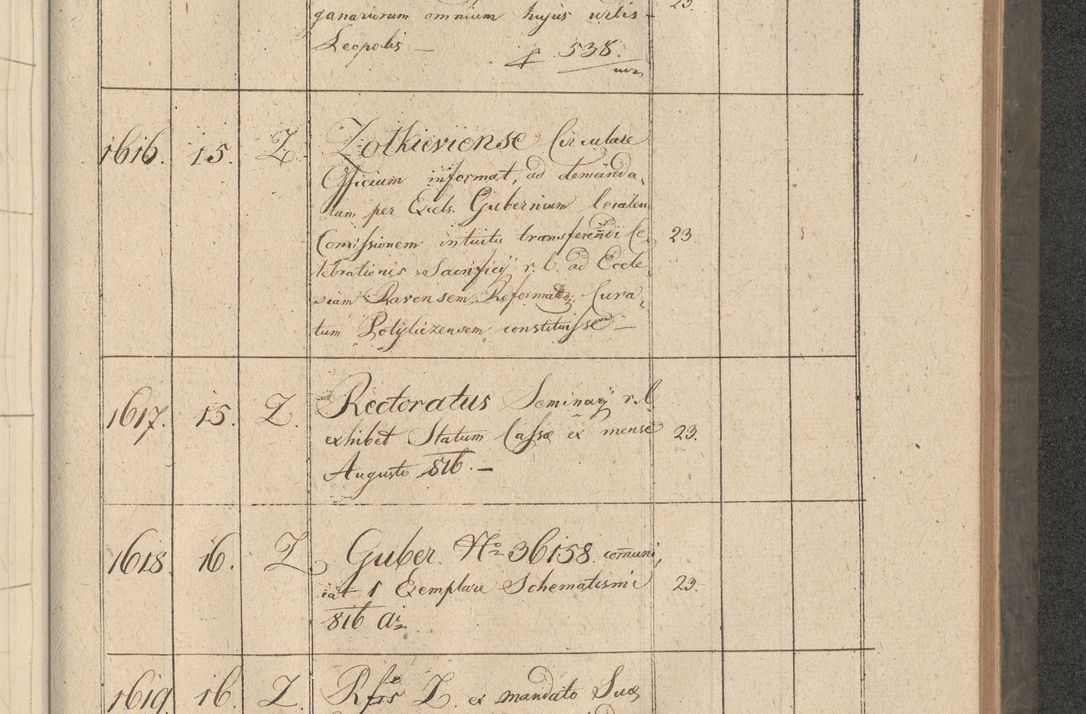 ganariorum omnium hujus urbis - 23.
Leopolis —
538.
1616. 15. Z. Zolkieviense Circulare
Officium informat, ad demanda,
tam per Excls. Gubernium localem
Comissionem intuitu transferendi Ce, 23
lebrationis Sacrificij r. l. ad Eccle,
siam Ravensem Reformat. Cura,
tum Potyliczensem constituisse —
1617. 15. Z. Rectoratus Seminarij r. l.
exhibet Statum Cassae ex mense 23.
Augusto 816. —
1618. 16. Z. Guber. No. 36158. comuni,
cat 1 Exemplare Schematismi 23.
816 ai
1619. 16. Z. Rfrs Z. ex mandato Suae